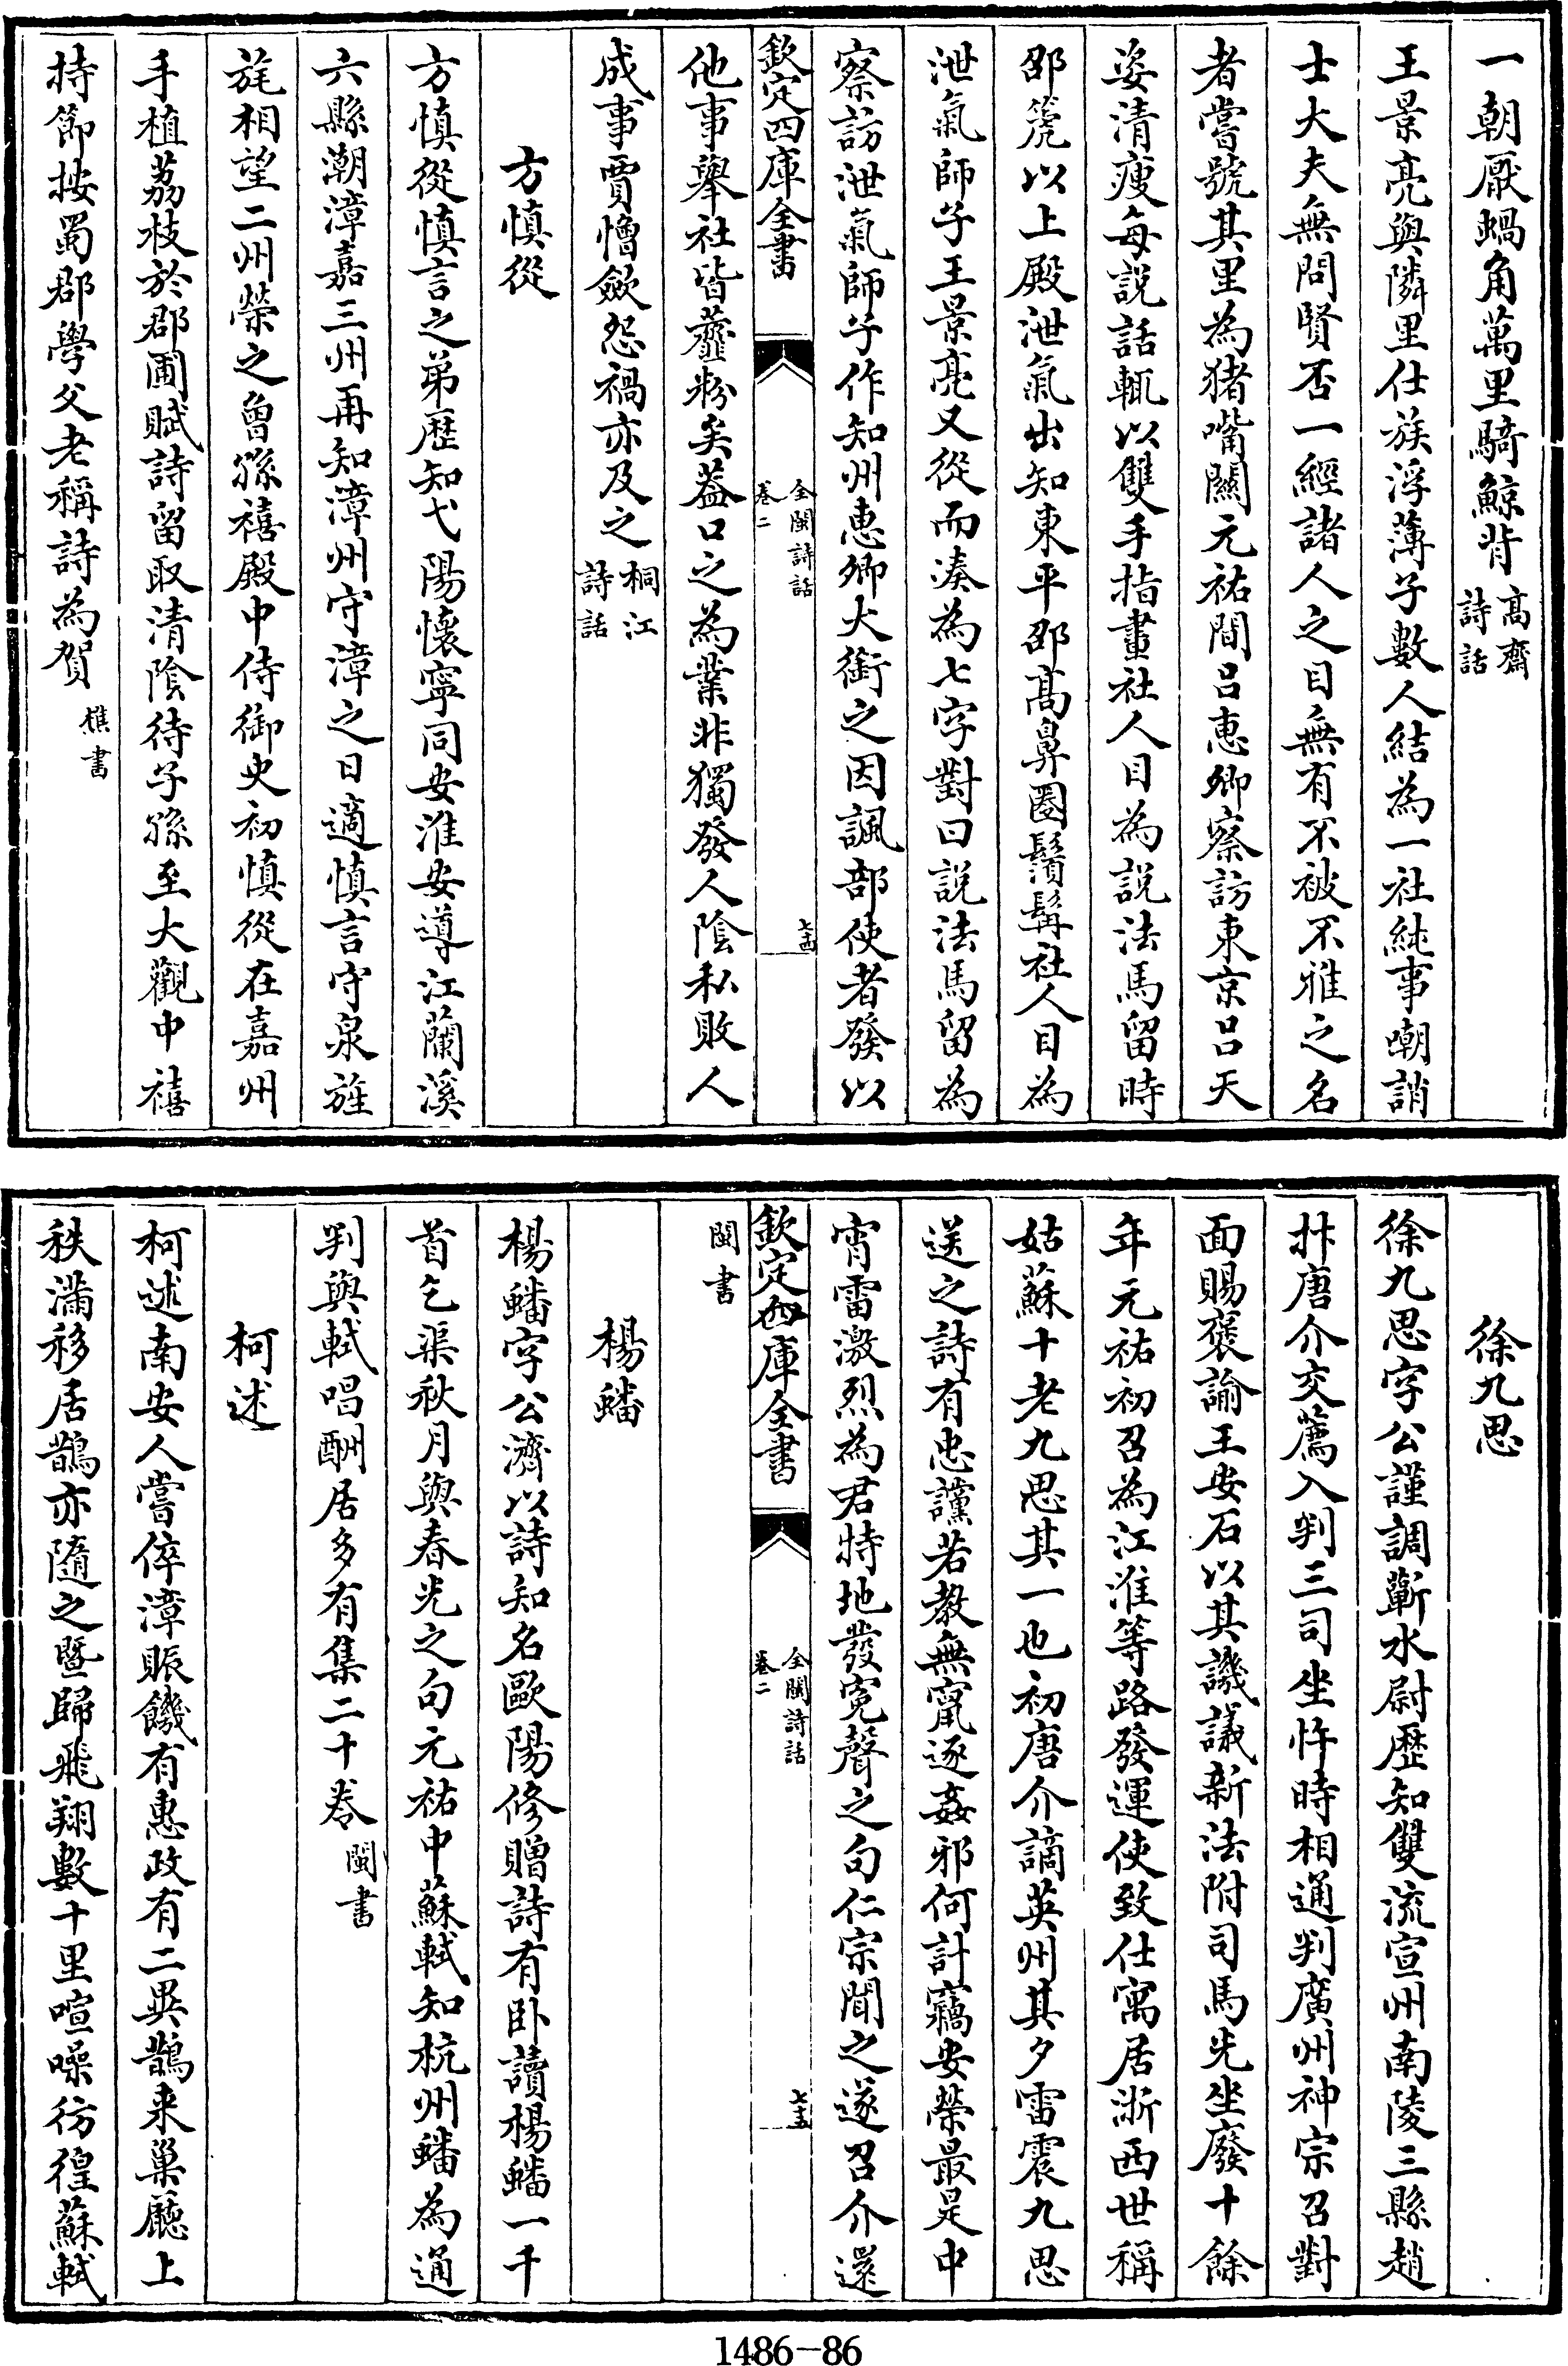 一朝厭蝸角萬里騎鯨背高齋詩話
王景亮與隣里仕族浮薄子數人結為一社純事嘲誚
士大夫無問賢否一經諸人之目無有不被不雅之名
者嘗號其里為猪嘴關元祐間呂惠卿察訪東京呂天
姿清瘦每説話輒以雙手指畫社人目為説法馬留時
邵箎以上殿泄氣出知東平邵髙鼻圏鬚髯社人目為
泄氣師子王景亮又從而湊為七字對曰説法馬留為
察訪泄氣師子作知州惠卿大銜之因諷部使者發以
欽定四庫全書
全閩詩話
卷二
七十四
他事舉社皆虀粉矣葢口之為業非獨發人隂私敗人
成事賈憎斂怨禍亦及之桐江詩話
方慎從
方慎從慎言之弟歴知弋陽懐寧同安淮安導江蘭溪
六縣潮漳嘉三州再知漳州守漳之日適慎言守泉旌
旄相望二州榮之曾孫禧殿中侍御史初慎從在嘉州
手植荔枝於郡圃賦詩留取清隂待子孫至大觀中禧
持節按蜀郡學父老稱詩為賀樵書
徐九思
徐九思字公謹調蘄水尉歴知雙流宣州南陵三縣趙
抃唐介交薦入判三司坐忤時相通判廣州神宗召對
面賜褒諭王安石以其譏議新法附司馬光坐廢十餘
年元祐初召為江淮等路發運使致仕寓居浙西世稱
姑蘇十老九思其一也初唐介謫英州其夕雷震九思
送之詩有忠讜若教無竄逐姦邪何計竊安榮最是中
宵雷激烈為君特地發寃聲之句仁宗聞之遂召介還
欽定四庫全書
全閩詩話
卷二
七十五
閩書
楊蟠
楊蟠字公濟以詩知名歐陽修贈詩有卧讀楊蟠一千
首乞渠秋月與春光之句元祐中蘇軾知杭州蟠為通
判與軾唱酬居多有集二十卷閩書
柯述
柯述南安人嘗倅漳賑饑有惠政有二異鵲来巢廳上
秩滿移居鵲亦隨之暨歸飛翔數十里喧噪彷徨蘇軾
1486-86